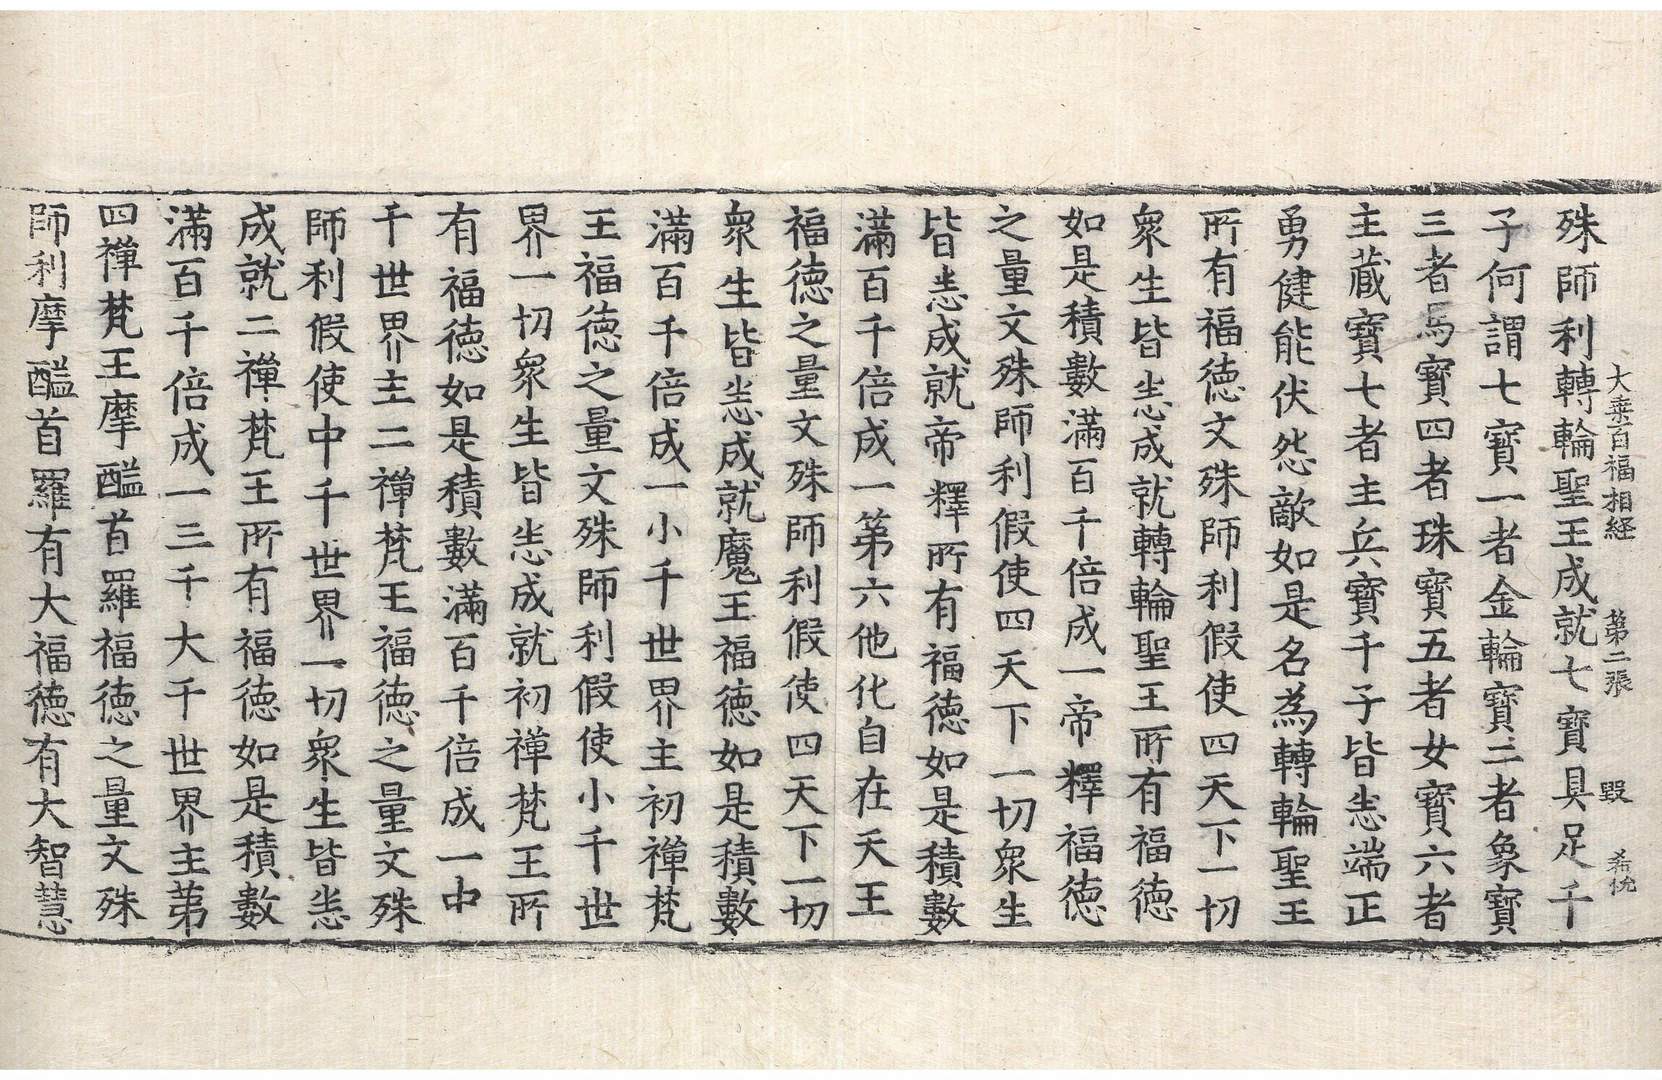 大乗百福相経 第二張 毀 希忱
殊師利轉輪聖王成就七寶具足千
子何謂七寶一者金輪寶二者象寶
三者馬寶四者珠寶五者女寶六者
主藏寶七者主兵寶千子皆悉端正
勇健能伏怨敵如是名為轉輪聖王
所有福德文殊師利假使四天下一切
衆生皆悉成就轉輪聖王所有福德
如是積數滿百千倍成一帝釋福德
之量文殊師利假使四天下一切衆生
皆悉成就帝釋所有福德如是積數
滿百千倍成一第六他化自在天王
福德之量文殊師利假使四天下一切
衆生皆悉成就魔王福德如是積數
滿百千倍成一小千世界主初禪梵
王福德之量文殊師利假使小千世
界一切衆生皆悉成就初禪梵王所
有福德如是積數滿百千倍成一中
千世界主二禪梵王福德之量文殊
師利假使中千世界一切衆生皆悉
成就二禪梵王所有福德如是積數
滿百千倍成一三千大千世界主第
四禪梵王摩醯首羅福德之量文殊
師利摩醯首羅有大福德有大智慧